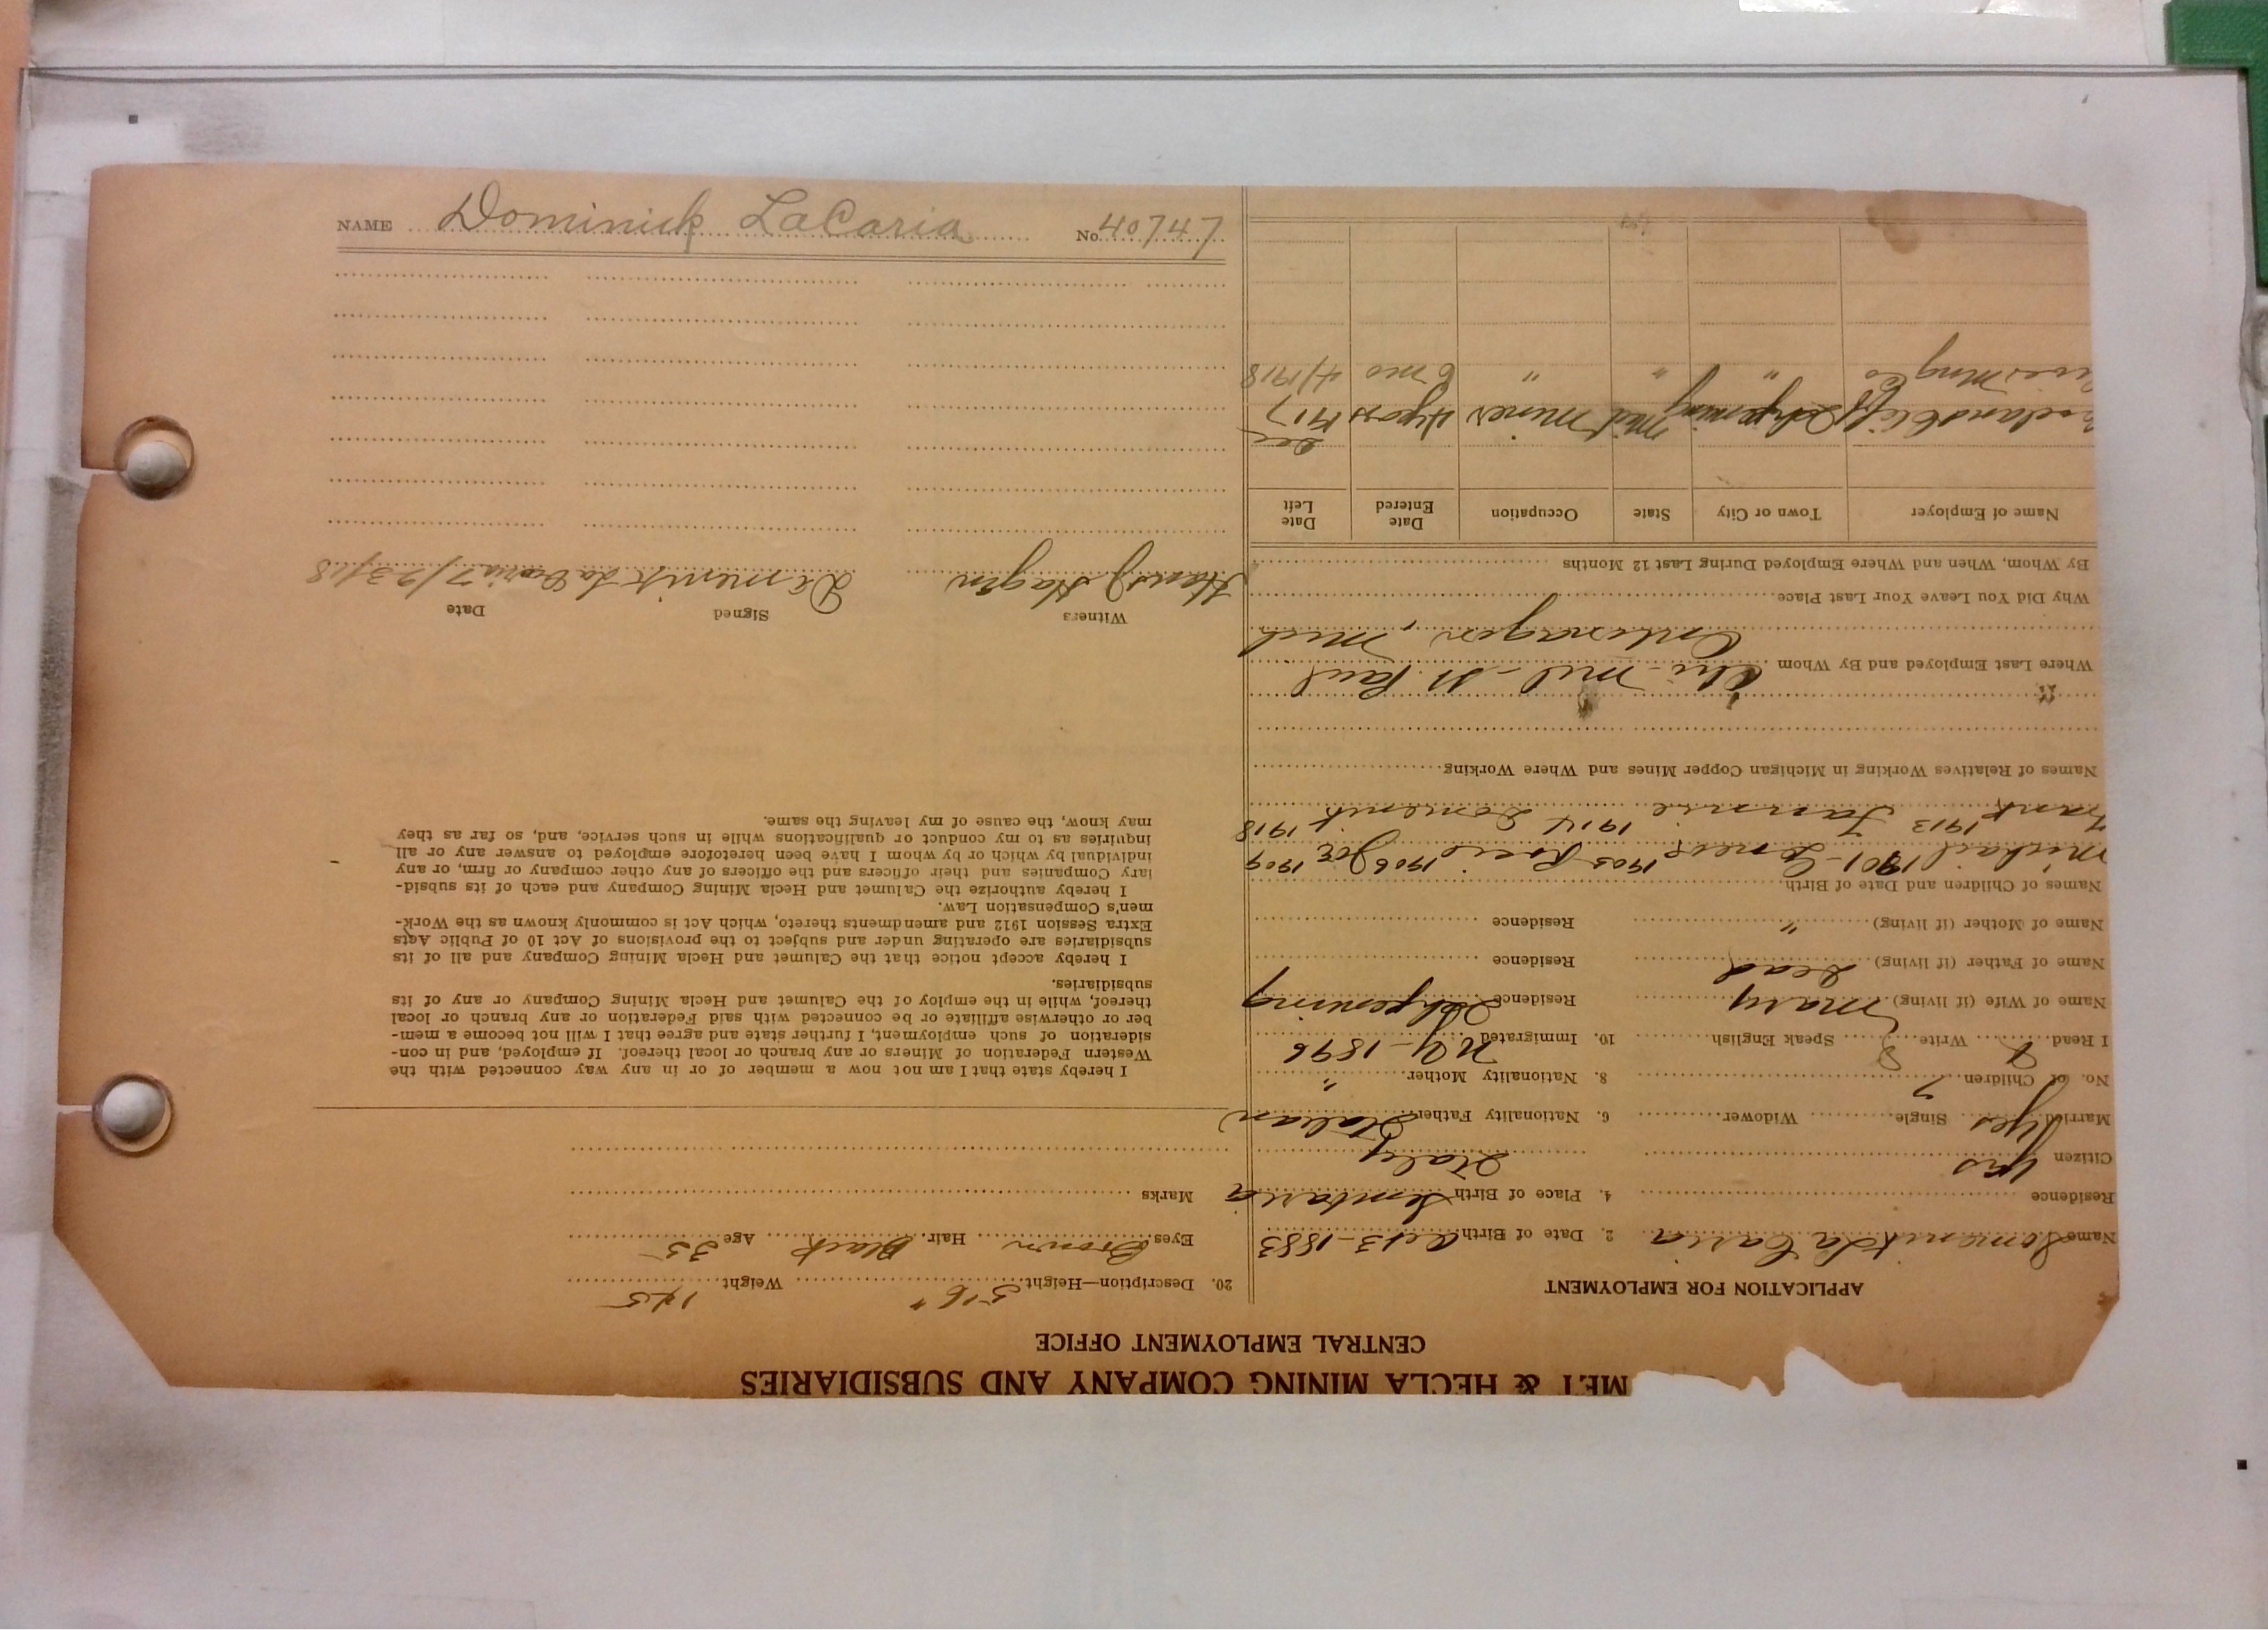 NAME Dominick LaCaria No. 40747
MET & HECLA MINING COMPANY AND SUBSIDIARIES
CENTRAL EMPLOYMENT OFFICE
APPLICATION FOR EMPLOYMENT
Name Domenik La Caria 2. Date of Birth 13-1883
Residence 4. Place of Birth
Citizen yes Italy
Married yes Single Widower 6. Nationality Father Italian
No. of Children 7 8. Nationality Mother "
I Read Write Speak English 10. Immigrated N.Y-1896
Name of Wife (if living) Mary Residence Ishpeming
Name of Father (if living) Dead Residence
Name of Mother (if living) " Residence
Names of Children and Date of Birth
Michael 1901 1905 1906 Joe 1909
Frank 1913 Fannie 1914 Domenik 1918
Names of Relatives Working in Michigan Copper Mines and Where Working
Where Last Employed and By Whom Chi-Mil-St Paul
Ontonagon, Mich
Why Did You Leave Your Last Place
By Whom, When and Where Employed During Last 12 Months
Name of Employer Town or City State Occupation Date Entered Date Left
Cleveland Cliff Ishpeming Mich Miner 4 yrs Dec 1917
Mng Co " " " 6 mo 4/1918
20. Description—Height 5'6" Weight 145
Eyes Brown Hair Black Age 35
Marks
I hereby state that I am not now a member of or in any way connected with the
Western Federation of Miners or any branch or local thereof. If employed, and in con-
sideration of such employment, I further state and agree that I will not become a mem-
ber or otherwise affiliate or be connected with said Federation or any branch or local
thereof, while in the employ of the Calumet and Hecla Mining Company or any of its
subsidiaries.
I hereby accept notice that the Calumet and Hecla Mining Company and all of its
subsidiaries are operating under and subject to the provisions of Act 10 of Public Acts
Extra Session 1912 and amendments thereto, which Act is commonly known as the Work-
men's Compensation Law.
I hereby authorize the Calumet and Hecla Mining Company and each of its subsid-
iary Companies and their officers and the officers of any other company or firm, or any
individual by which or by whom I have been heretofore employed to answer any or all
inquiries as to my conduct or qualifications while in such service, and, so far as they
may know, the cause of my leaving the same.
Witness Signed Date
Hans J Hagen Dimenik La Caria 7/23/18